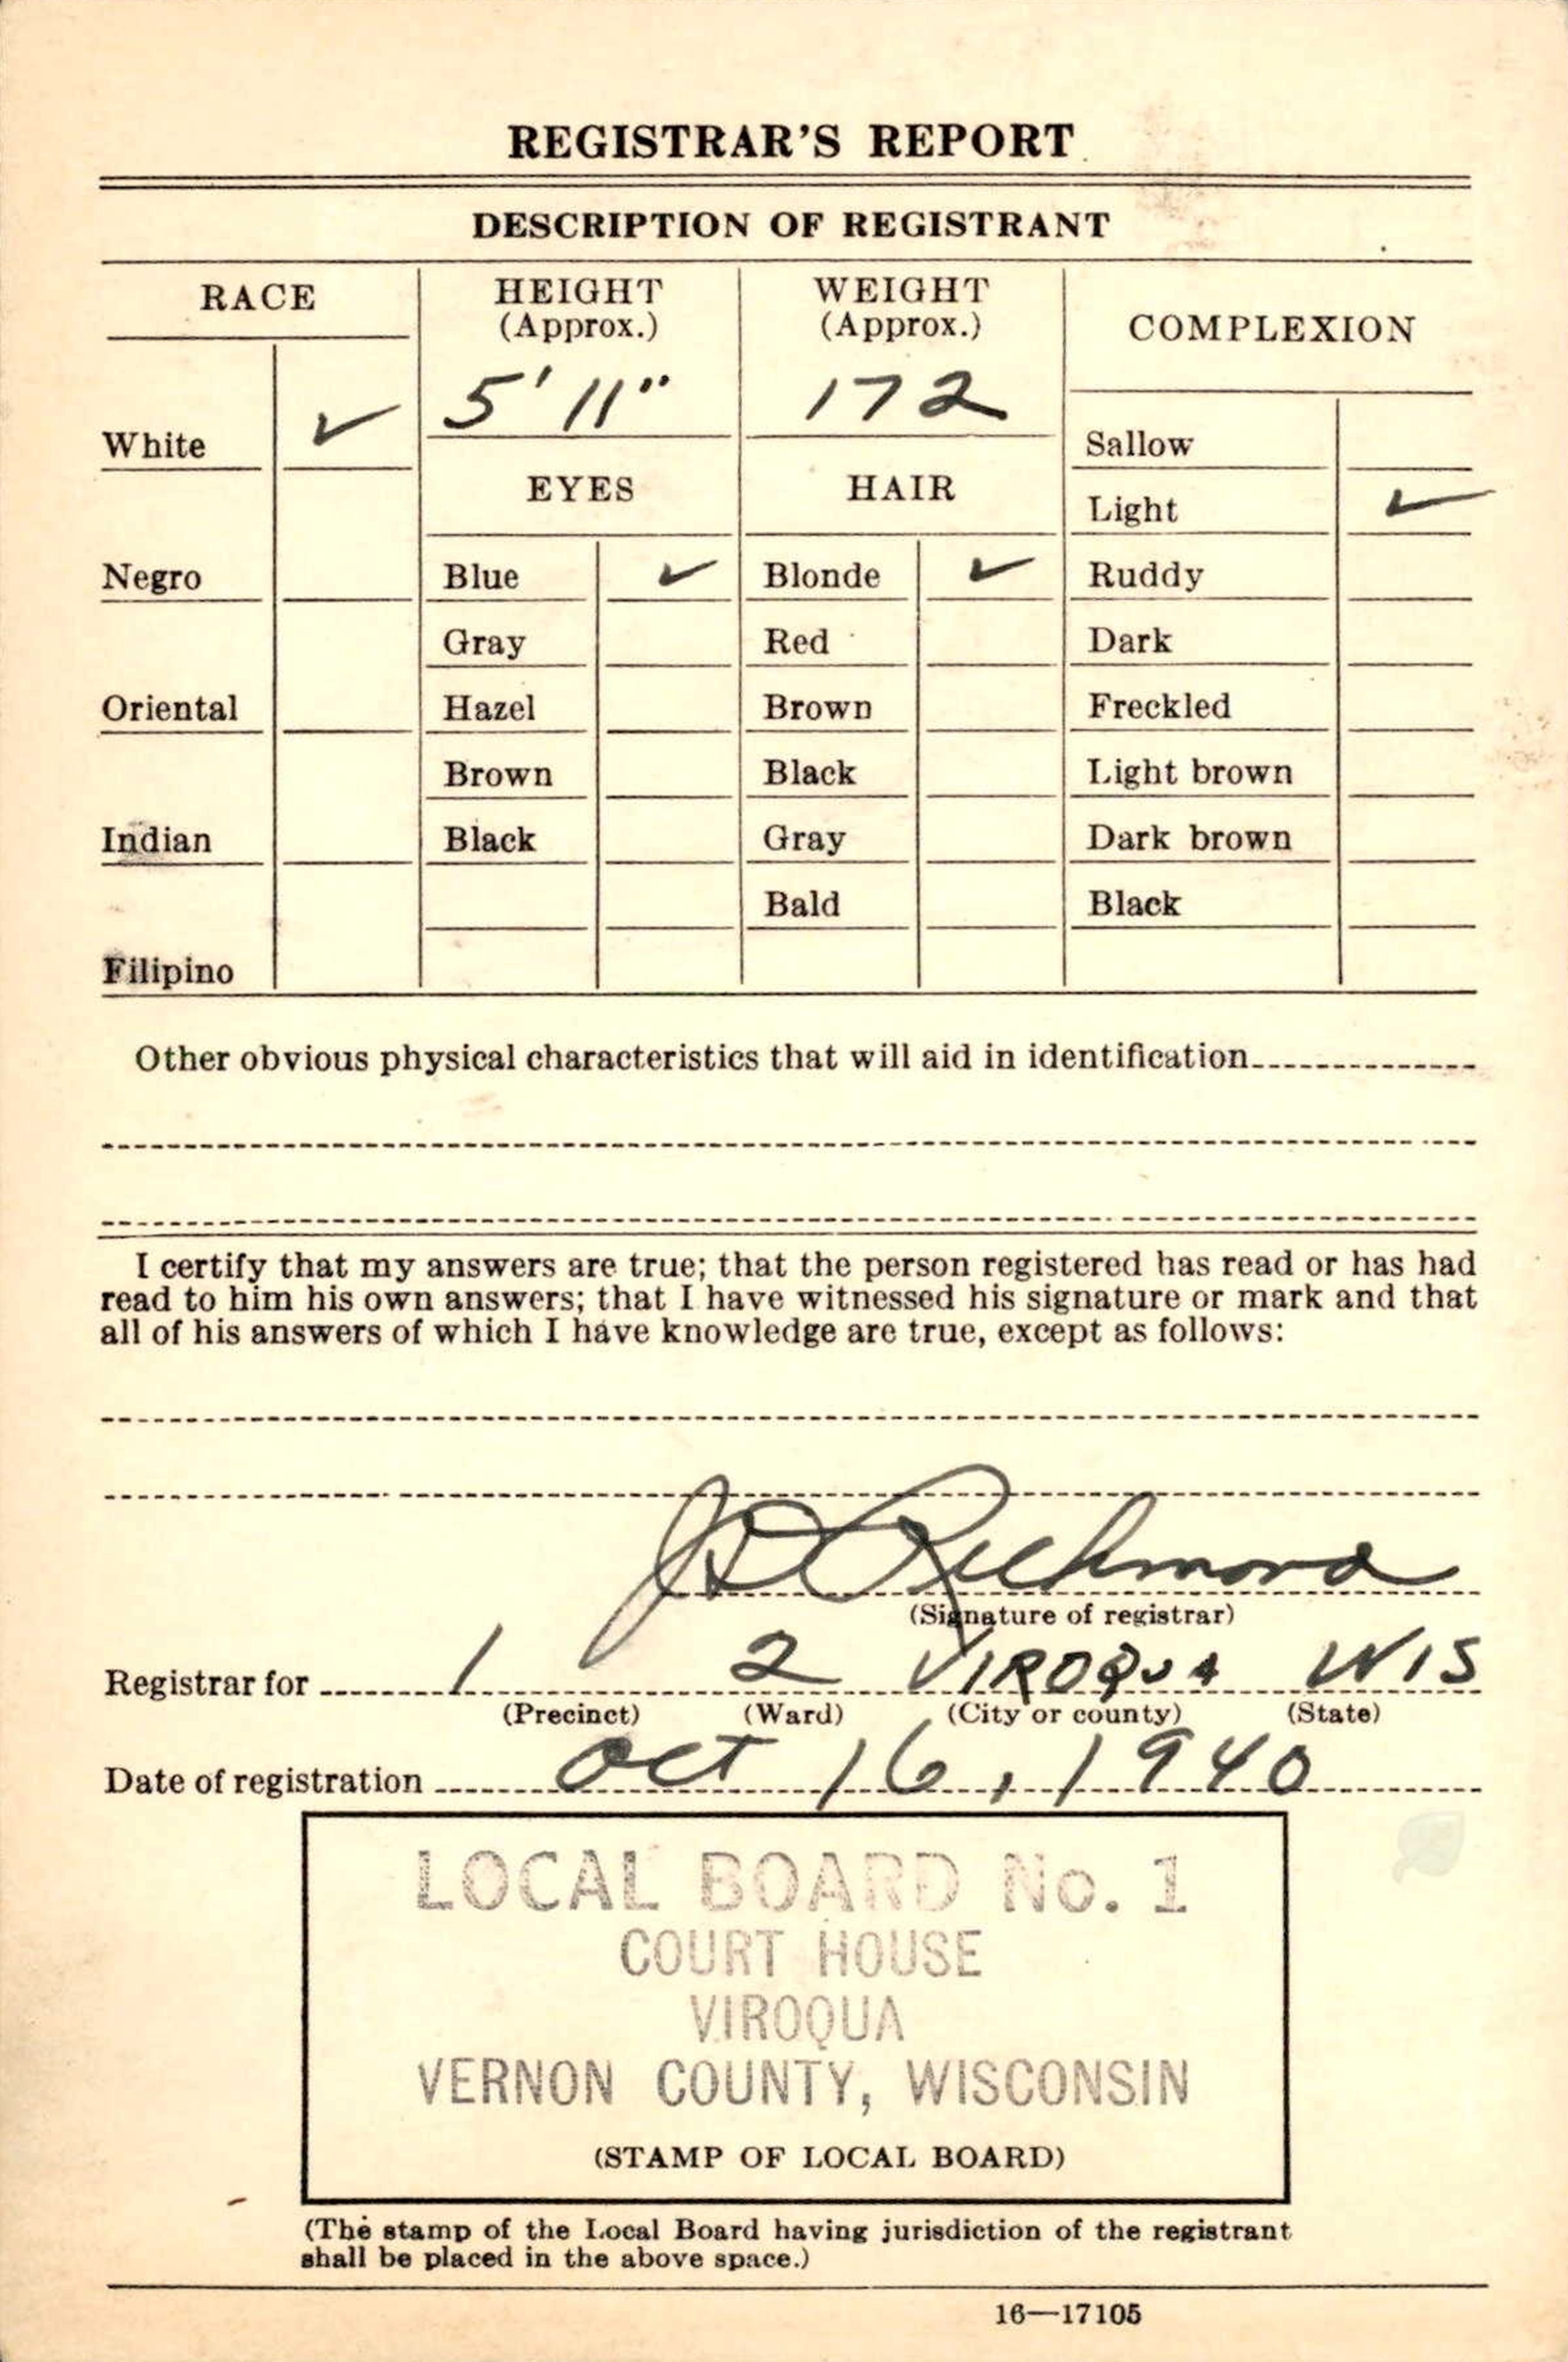 REGISTRAR'S REPORT
DESCRIPTION OF REGISTRANT
RACE HEIGHT (Approx.) WEIGHT (Approx.) COMPLEXION
5' 11" 172
White ✓ Sallow
EYES HAIR Light ✓
Negro Blue ✓ Blonde ✓ Ruddy
Gray Red Dark
Oriental Hazel Brown Freckled
Brown Black Light brown
Indian Black Gray Dark brown
Bald Black
Filipino
Other obvious physical characteristics that will aid in identification
I certify that my answers are true; that the person registered has read or has had
read to him his own answers; that I have witnessed his signature or mark and that
all of his answers of which I have knowledge are true, except as follows:
Richmond
(Signature of registrar)
Registrar for 1 2 VIROQUA WIS
(Precinct) (Ward) (City or county) (State)
Date of registration Oct 16, 1940
LOCAL BOARD No. 1
COURT HOUSE
VIROQUA
VERNON COUNTY, WISCONSIN
(STAMP OF LOCAL BOARD)
(The stamp of the Local Board having jurisdiction of the registrant
shall be placed in the above space.)
16—17105